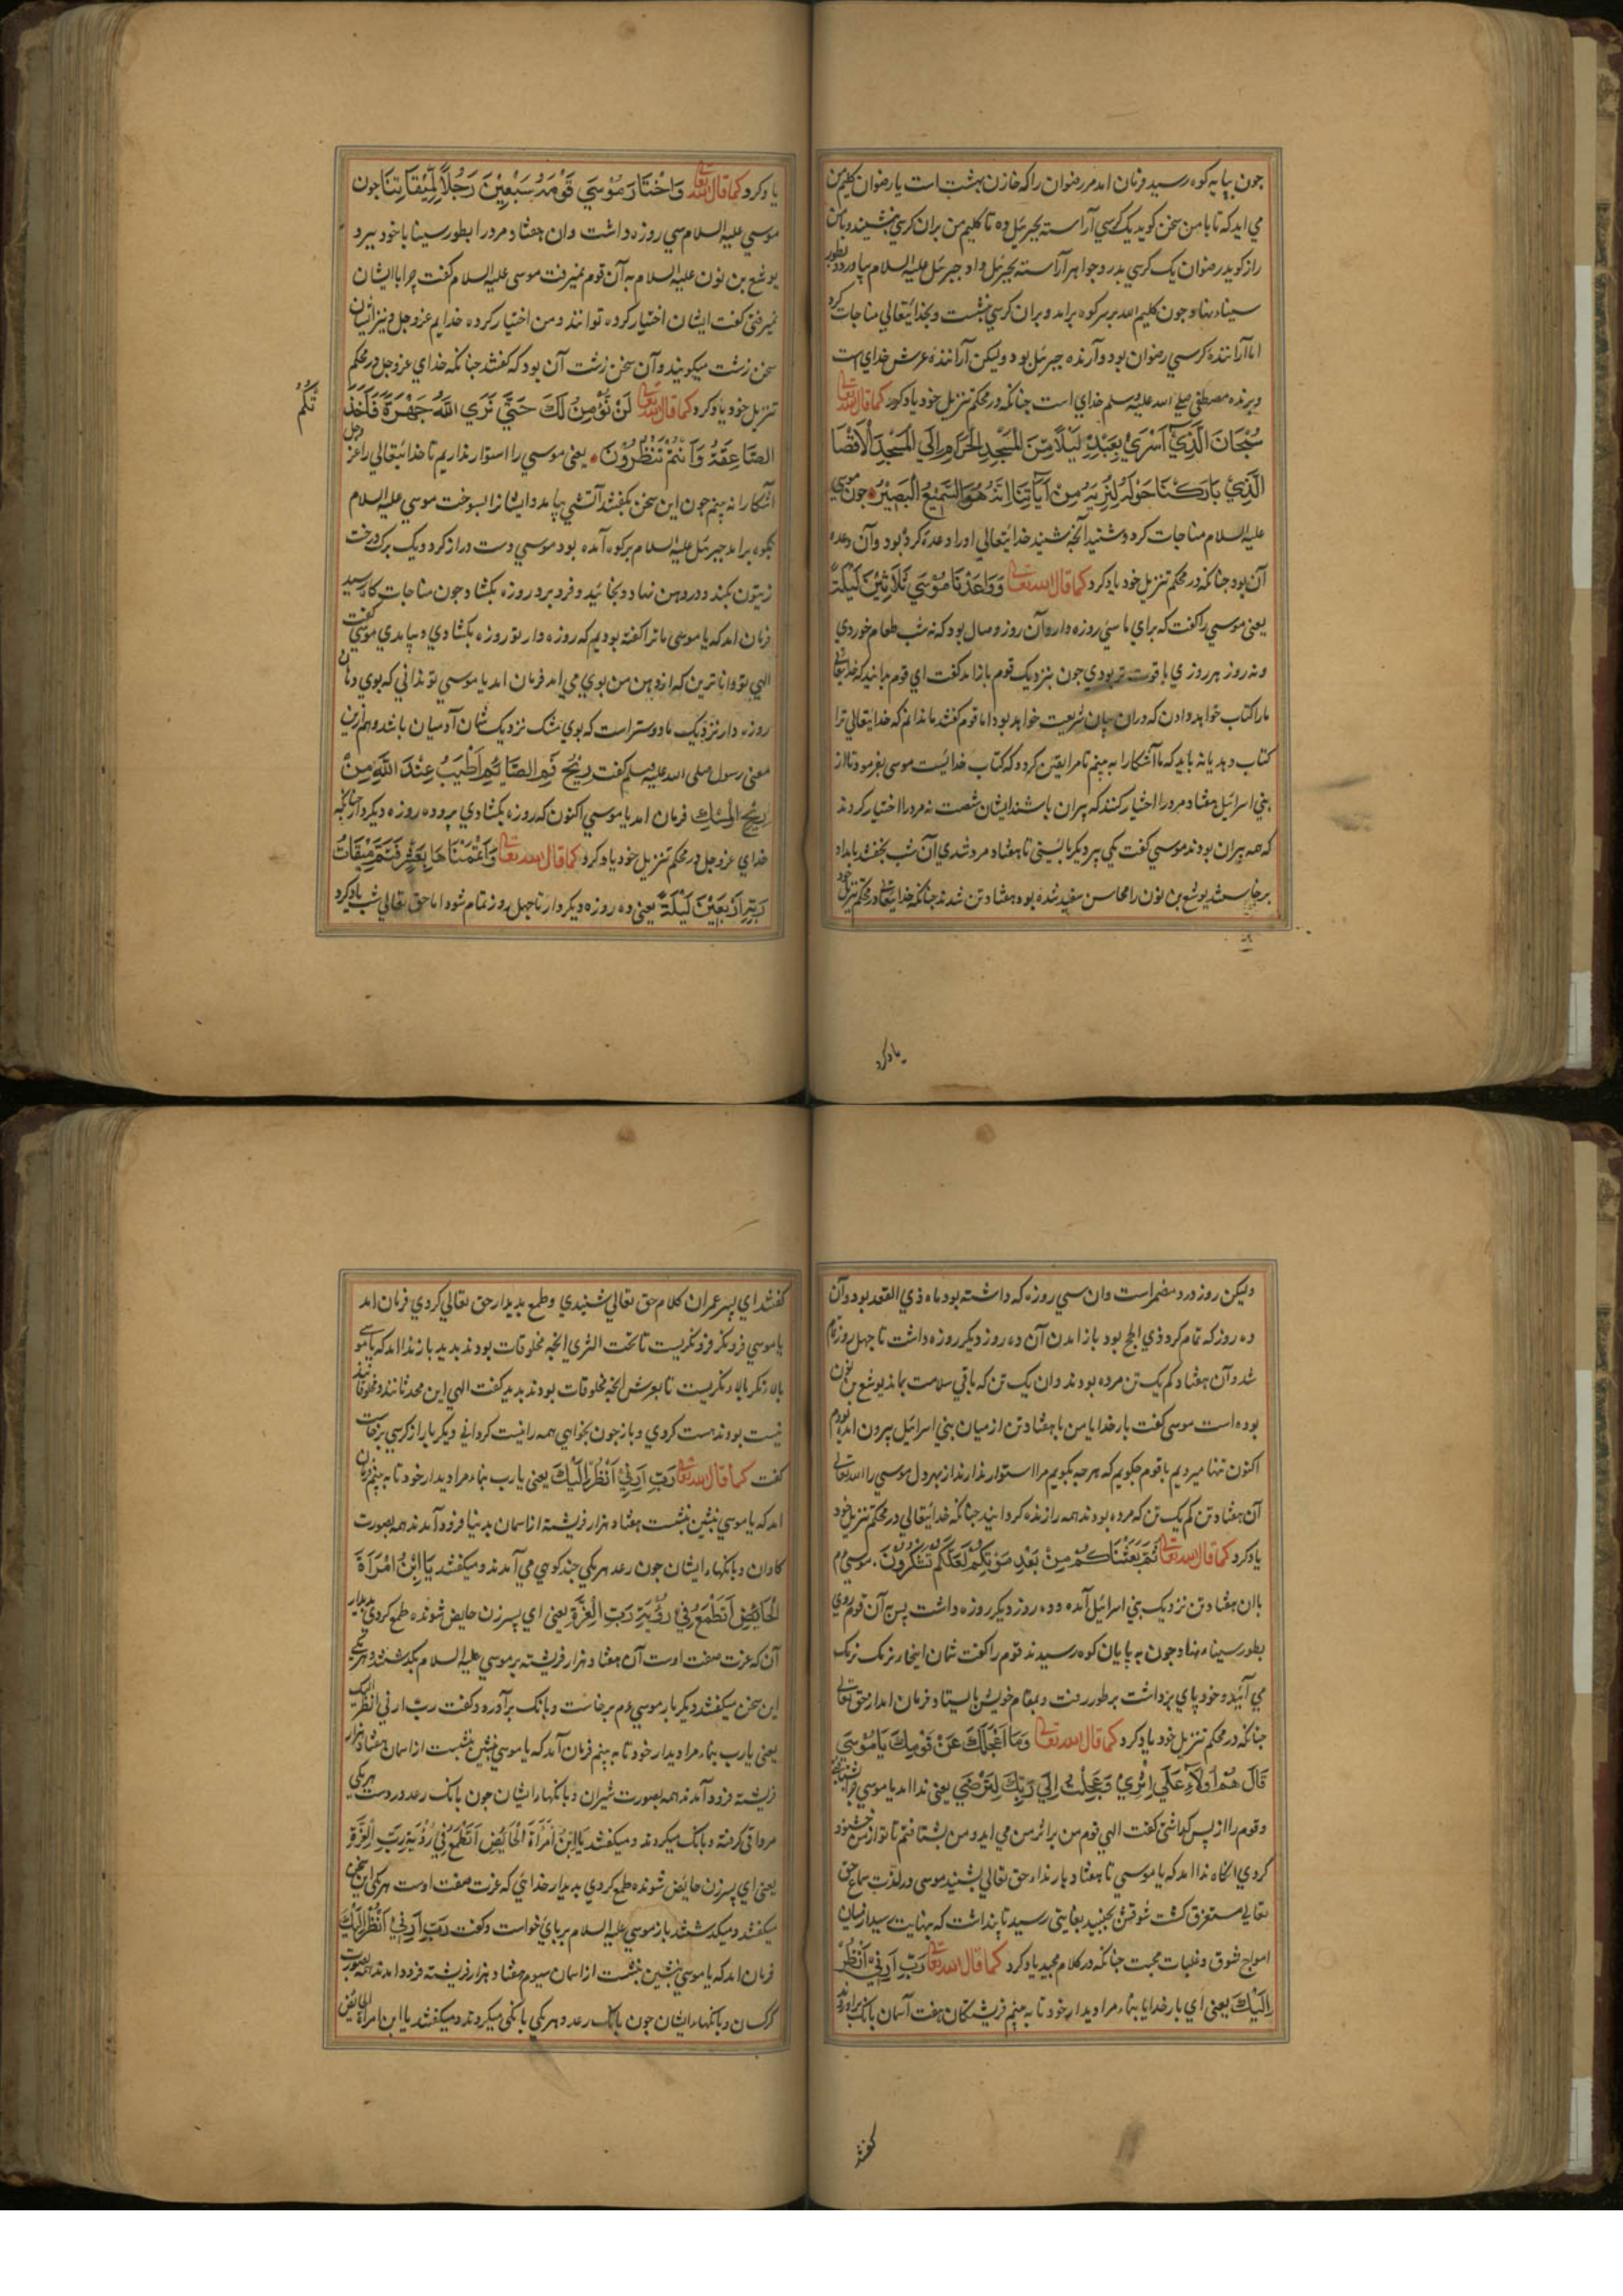 جون بپایه کوه رسید فرمان امد مر رضوان را که خازن بهشت است یا رضوان کلیم من
می اید که تا با من سخن کوید یک کرسی آراسته بجبرئیل ده تا کلیم من بران کرسی بنشیند و با من
راز کوید رضوان یک کرسی بدر و جواهر آراسته بجبرئیل داد جبرئیل علیه السلام بیاورد و بطور
سیناء بنهاد جون کلیم الله بر سر کوه برامد و بران کرسی بنشست و بخدایتعالی مناجات کرد
اما آراننده کرسی رضوان بود و آرنده جبرئیل بود ولیکن آراننده عرش خدای است
و برنده مصطفی صلی الله علیه وسلم خدای است جنانکه در محکم تنزیل خود یاد کرد کما قال الله تعالی
سُبْحَانَ الَّذِيْ اَسْرَيٰ بِعَبْدِهٖ لَيْلًا مِّنَ الْمَسْجِدِ الْحَرَامِ اِلَي الْمَسْجِدِ الْاَقْصَا
الَّذِيْ بَارَكْنَا حَوْلَهُ لِنُرِيَهُ مِنْ اٰيَاتِنَا اِنَّهُ هُوَ السَّمِيْعُ الْبَصِيْرُ جون موسی
علیه السلام مناجات کرد و شنید آنجه شنید خدایتعالی او را وعده کرده بود وآن وعده
آن بود جنانکه در محکم تنزیل خود یاد کرد کما قال الله تعالی وَوَاعَدْنَا مُوْسَي ثَلَاثِيْنَ لَيْلَةً
یعنی موسی را کفت که برای ما سی روزه دار وآن روز وصال بود که نه شب طعام خوردی
و نه روز هر روزی با قوت تر بودی جون بنزدیک قوم باز امد کفت ای قوم بدانید که خدایتعالی
مارا کتاب خواهد دادن که دران بیان شریعت خواهد بود اما قوم کفتند ما ندانم که خدایتعالی ترا
کتاب دهد یا نه باید که ما آشکارا به بینم تا مرا یقین کردد که کتاب خدائیست موسی بفرمود تا از
بنی اسرائیل هفتاد مرد را اختیار کنند که پیران باشند ایشان شصت نه مرد را اختیار کردند
که همه پیران بودند موسی کفت یکی پیر دیکر بایستی تا هفتاد مرد شدی آن شب بخفتند بامداد
برخاستند یوشع بن نون را محاسن سفید شده بود هفتاد تن شدند جنانکه خدایتعالی در محکم تنزیل خود
یاد کرد
یاد کرد کما قال الله تعالی وَاخْتَارَ مُوْسَي قَوْمَهُ سَبْعِيْنَ رَجُلًا لِّمِيْقَاتِنَا جون
موسی علیه السلام سی روزه داشت وان هفتاد مرد را بطور سینا با خود ببرد
یوشع بن نون علیه السلام به آن قوم نمیرفت موسی علیه السلام کفت چرا با ایشان
نمیرفتی کفت ایشان اختیار کرده تو انند ومن اختیار کرده خدایم عز وجل ونیز ایشان
سخن زشت میکویند وآن سخن زشت آن بود که کفتند جنانکه خدای عز وجل در محکم
تنزیل خود یاد کرد کما قال الله تعالی لَنْ نُّؤْمِنَ لَكَ حَتّٰي نَرَي اللّٰهَ جَهْرَةً فَاَخَذَ
تكم
الصَّاعِقَةُ وَاَنْتُمْ تَنْظُرُوْنَ یعنی موسی را استوار نداریم تا خدایتعالی را عز وجل
آشکارا نه بینم جون این سخن بکفتند آتشی بیامد و ایشانرا بسوخت موسی علیه السلام
بکوه برامد جبرئیل علیه السلام بر کوه آمده بود موسی دست دراز کرد و یک برک درخت
زیتون بکند و در دهن نهاد و بخائید و فرو برد و روزه بکشاد جون مناجات کاه رسید
فرمان امد که یا موسی ما ترا کفته بودیم که روزه دار تو روزه بکشادی و بیامدی موسی کفت
الهی تو دانا ترین که از دهن من بوی می امد فرمان امد یا موسی تو ندانی که بوی دهان
روزه دار نزدیک ما دوستر است که بوی مشک نزدیک شمان آدمیان باشد وهم زین
معنی رسول صلی الله علیه وسلم کفت رِيْحُ فَمِ الصَّائِمِ اَطْيَبُ عِنْدَ اللّٰهِ مِنْ
رِيْحِ الْمِسْكِ فرمان امد یا موسی اکنون که روزه بکشادی برو ده روزه دیکر دار جنانکه
خدای عز وجل در محکم تنزیل خود یاد کرد کما قال الله تعالی وَاَتْمَمْنَاهَا بِعَشْرٍ فَتَمَّ مِيْقَاتُ
رَبِّهٖ اَرْبَعِيْنَ لَيْلَةً یعنی ده روزه دیکر دار تا جهل روز تمام شود اما حق تعالی شب یاد کرد
ولیکن روز درو مضمر است وان سی روزه که داشته بود ماه ذی القعد بود وآن
ده روز که تمام کرد ذی الحج بود باز امدن آن ده روز دیکر روزه داشت تا جهل روز تمام
شد وآن هفتاد کم یک تن مرده بودند وان یک تن که باقی سلامت بماند یوشع بن نون
بوده است موسی کفت بار خدایا من با هفتاد تن از میان بنی اسرائیل بیرون امده بودم
اکنون تنها میرویم با قوم جکویم که هر جه بکویم مرا استوار ندارند از بهر دل موسی را الله تعالی
آن هفتاد تن کم یک تن که مرده بودند همه را زنده کردانید جنانکه خدایتعالی در محکم تنزیل خود
یاد کرد کما قال الله تعالی ثُمَّ بَعَثْنَاكُمْ مِنْ بَعْدِ مَوْتِكُمْ لَعَلَّكُمْ تَشْكُرُوْنَ موسی عم
با ان هفتاد تن نزدیک بنی اسرائیل آمده و ده روز دیکر روزه داشت پس به آن قوم روی
بطور سیناء نهاد جون به پایان کوه رسیدند قوم را کفت شمان اینجا نرنک نرنک
می آئید و خود پای برداشت بر طور رفت و بمقام خویش بایستاد فرمان امد از حق تعالی
جنانکه در محکم تنزیل خود یاد کرد کما قال الله تعالی وَمَا اَعْجَلَكَ عَنْ قَوْمِكَ يَا مُوْسَي
قَالَ هُمْ اُولَاءِ عَلَي اَثَرِيْ وَعَجِلْتُ اِلَيْكَ رَبِّ لِتَرْضَي یعنی ندا امد یا موسی جرا شتافتی
و قوم را از پس کذاشتی کفت الهی قوم من بر اثر من می اید و من بشتافتم تا تو از من خشنود
کردی انکاه ندا امد که یا موسی تا هفتاد بار نداء حق تعالی بشنید موسی در لذت سماع حق
تعالی مستغرق کشت شوقش بجنبید بغایتی رسید تا پنداشت که بنهایت رسید از میان
امواج شوق و غلبات محبت جنانکه در کلام مجید یاد کرد کما قال الله تعالی رَبِّ اَرِنِيْ اَنْظُرْ
اِلَيْكَ یعنی ای بار خدایا بنماء مرا دیدار خود تا به بینم فریشتکان هفت آسمان بانک براوردند
کفتند
کفتند ای پسر عمران کلام حق تعالی شنیدی وطمع بدیدار حق تعالی کردی فرمان امد
یا موسی فرو نکر فرو نکریست تا تحت الثری انجه مخلوقات بودند بدید باز ندا امد که یا موسی
بالا نکر بالا نکریست تا بعرش انجه مخلوقات بودند بدید کفت الهی این محدثانند و مخلوقانند
نیست بودند هست کردی و باز جون بخواهی همه را نیست کردانی دیکر بار از کرسی برخاست
کفت کما قال الله تعالی رَبِّ اَرِنِيْ اَنْظُرْ اِلَيْكَ یعنی یا رب بنماء مرا دیدار خود تا به بینم فرمان
امد که یا موسی بنشین بنشست هفتاد هزار فریشته از اسمان بدنیا فرود آمدند همه بصورت
کاوان و بانکهاء ایشان جون رعد هر یکی جند کوهی می آمدند و میکفتند يَا ابْنَ امْرَاَةِ
الْحَائِضِ اَتَطْمَعُ فِيْ رُؤْيَةِ رَبِّ الْعِزَّةِ یعنی ای پسر زن حایض شونده طمع کردی بدیدار
آن که عزت صفت اوست آن هفتاد هزار فریشته بر موسی علیه السلام بکذشتند و هر یکی
این سخن میکفتند دیکر بار موسی عم برخاست و بانک برآورد و کفت رب ارنی انظر الیک
یعنی یا رب بنماء مرا دیدار خود تا به بینم فرمان آمد که یا موسی بنشین بنشست از اسمان هفتاد هزار
فریشته فرود آمدند همه بصورت شیران و بانکهاء ایشان جون بانک رعد و در دست هر یکی
مزراقی کرفته و بانک میکردند و میکفتند يَا ابْنَ امْرَاَةِ الْحَائِضِ اَتَطْمَعُ فِيْ رُؤْيَةِ رَبِّ الْعِزَّةِ
یعنی ای پسر زن حایض شونده طمع کردی بدیدار خدائی که عزت صفت اوست هر یکی این سخن
میکفتند و میکذشتند باز موسی علیه السلام بر پای خواست و کفت رَبِّ اَرِنِيْ اَنْظُرْ اِلَيْكَ
فرمان امد که یا موسی بنشین بنشست از اسمان سیوم هفتاد هزار فریشته فرود امدند همه بصورت
کرکسان و بانکهاء ایشان جون بانک رعد و هر یکی بانکی میکردند و میکفتند یا ابن امراة الحائض